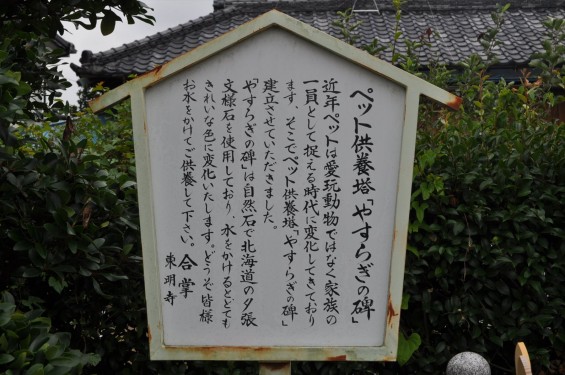 ペット供養塔「やすらぎの碑」
近年ペットは愛玩動物ではなく家族の
一員として捉える時代に変化してきており
ます。そこでペット供養塔「やすらぎの碑」
建立させていただきました。
「やすらぎの碑」は自然石で北海道の夕張
文様石を使用しており、水をかけるととても
きれいな色に変化いたします。どうぞ皆様
お水をかけてご供養して下さい。合掌
東明寺